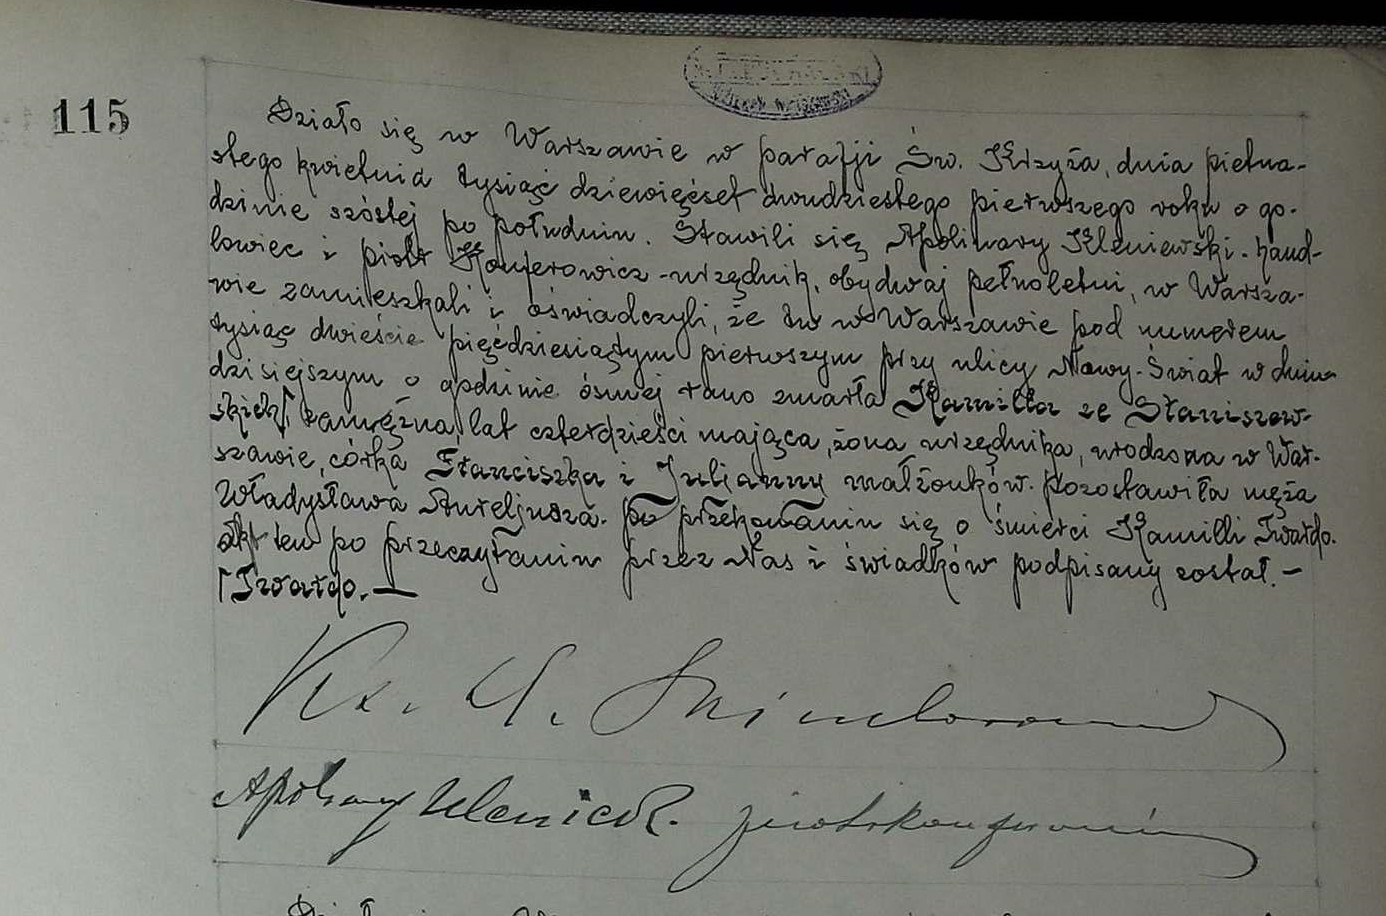 115
Działo się w Warszawie w parafji Św. Krzyża, dnia piętna-
stego kwietnia tysiąc dziewięćset dwudziestego pierwszego roku o go-
dzinie szóstej po południu. Stawili się Apolinary Kleniewski-hand-
lowiec i Piotr Konferowicz-urzędnik, obydwaj pełnoletni, w Warsza-
wie zamieszkali i oświadczyli, że tu w Warszawie pod numerem
tysiąc dwieście pięćdziesiątym pierwszym przy ulicy Nowy-Świat w dniu
dzisiejszym o godzinie ósmej rano zmarła Kamilla ze Staniszew-
skich⌈ zamężna, lat czterdzieści mająca, żona urzędnika, urodzona w War-
szawie, córka Franciszka i Juljanny małżonków. Pozostawiła męża
Władysława Aureljusza. Po przekonaniu się o śmierci Kamilli Twardo.
akt ten po przeczytaniu przez Nas i świadków podpisany został.-
⌈Twardo.—
Ks.
Apolinary Piotr Konferowicz